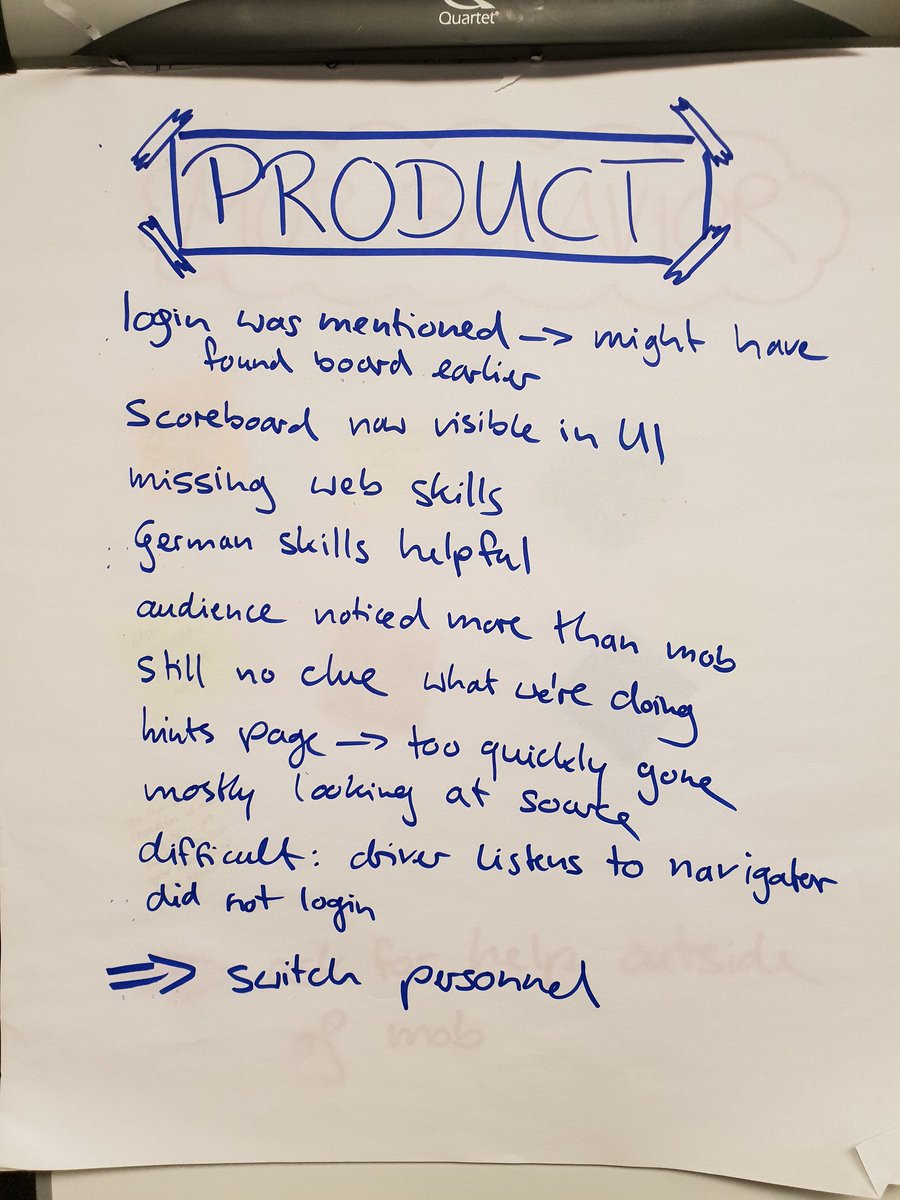 Quartet
PRODUCT
login was mentioned -> might have
found board earlier
Scoreboard now visible in UI
missing web skills
German skills helpful
audience noticed more than mob
still no clue what we're doing
hints page -> too quickly gone
mostly looking at source
difficult: driver listens to navigator
did not login
=> switch personnel
ask for help outside
of mob